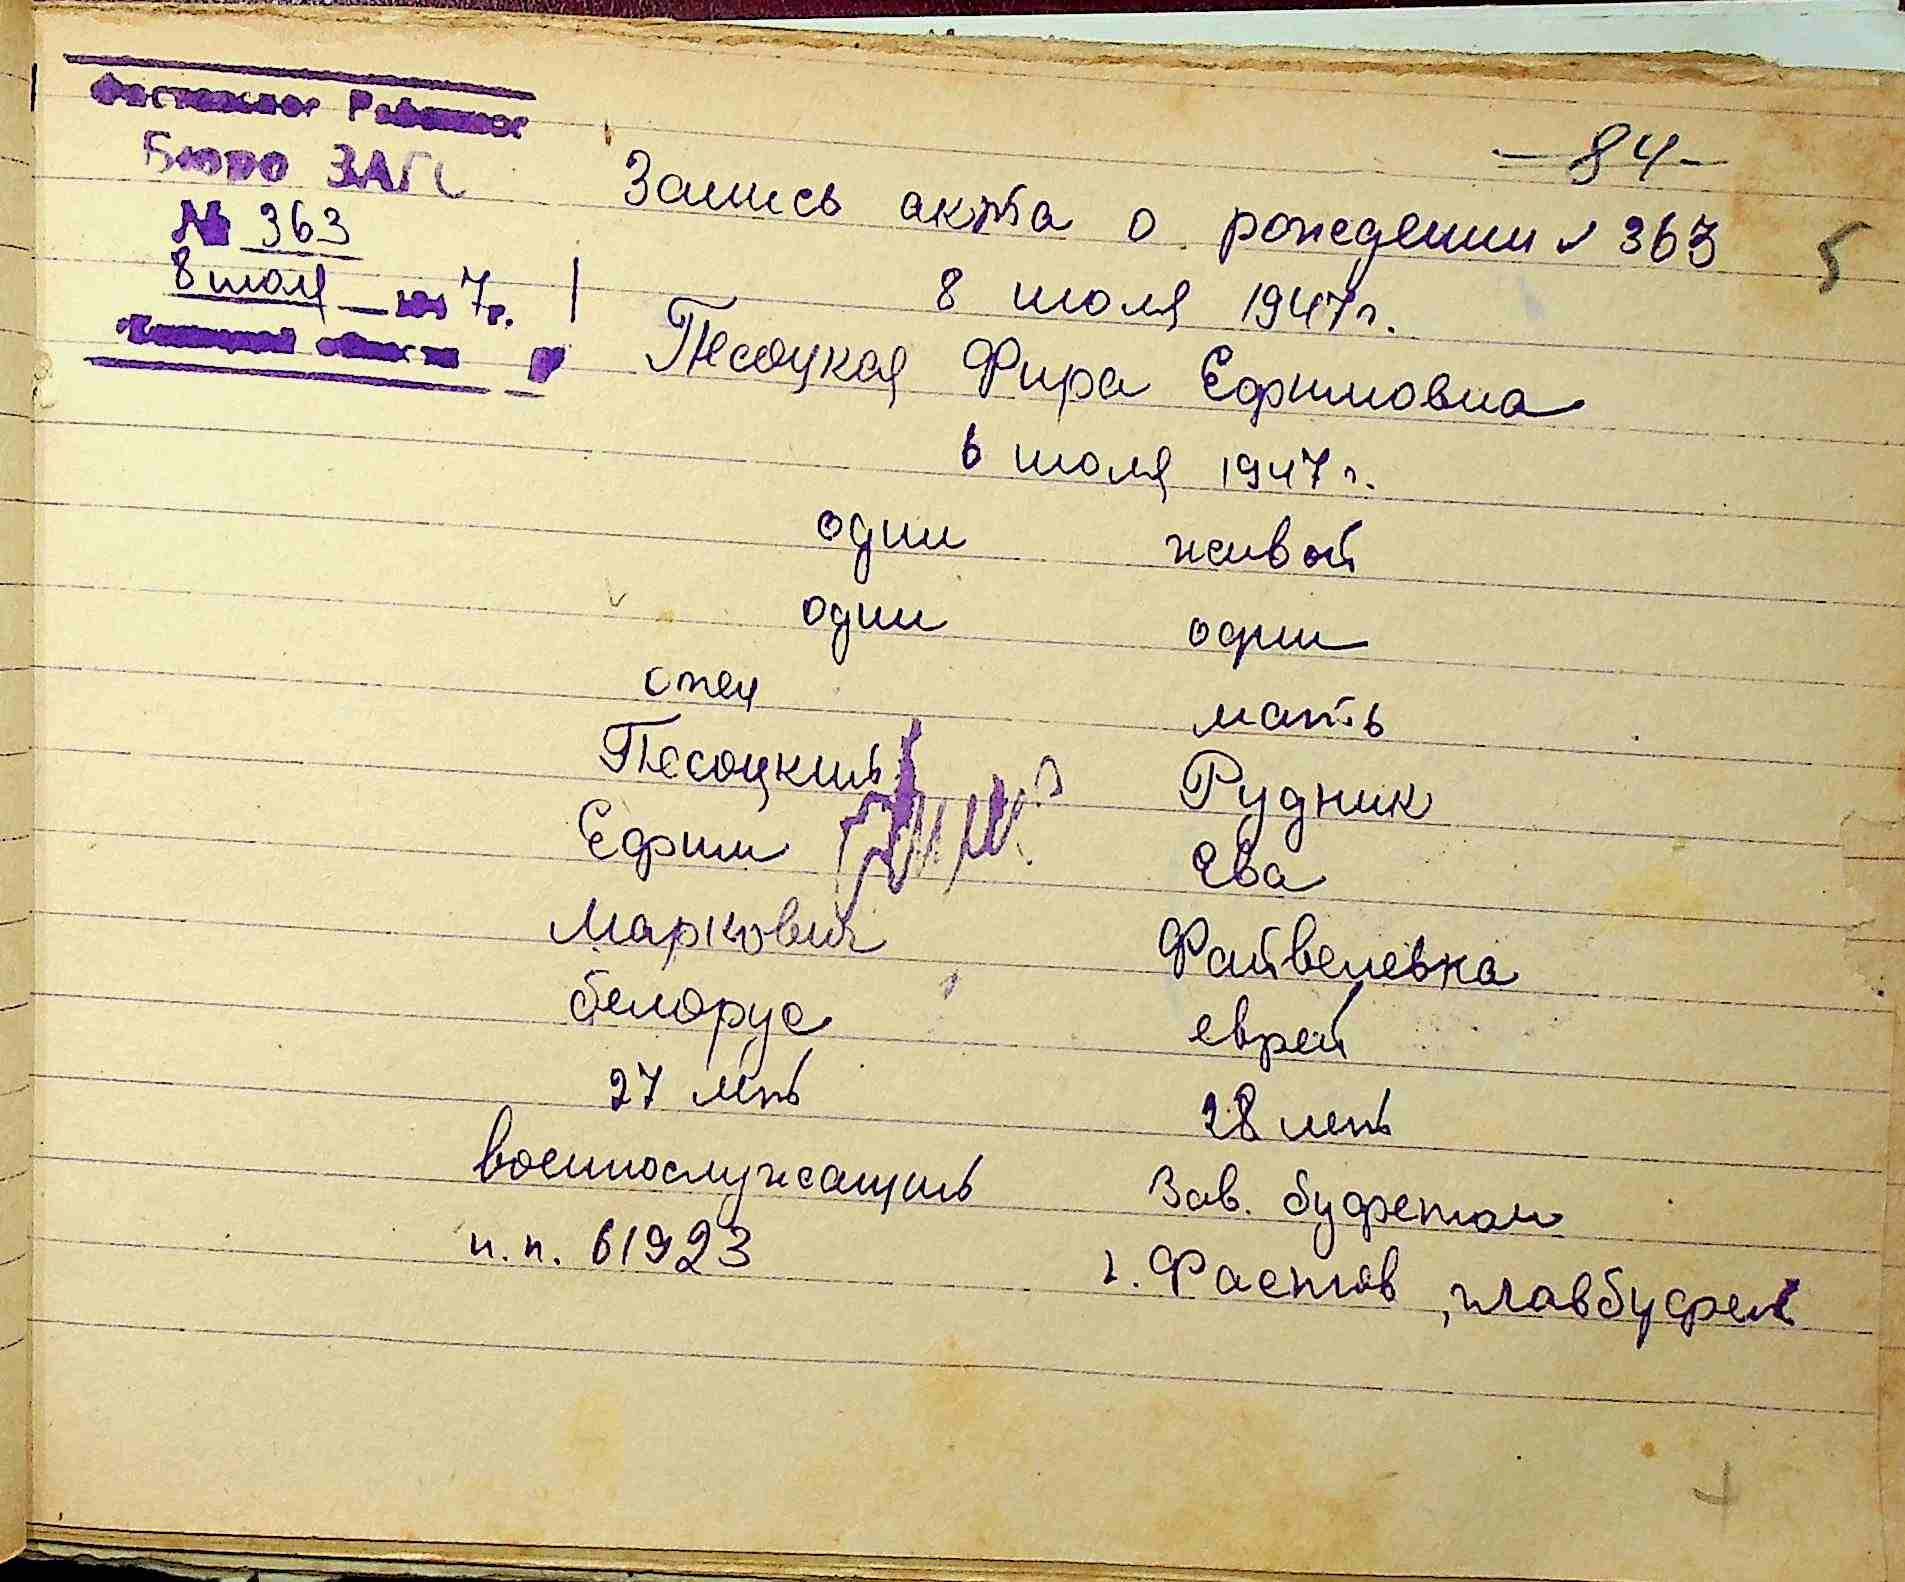 Бюро ЗАГС
№ 363
8 июля 194 7г.
области
— 84 —
Запись акта о рождении № 363
5
8 июля 1947 г.
Песоцкая Фира Ефимовна
6 июля 1947 г.
один живой
один один
отец мать
Песоцкий Рудник
Ефим Ева
Маркович Файвелевна
белорус еврей
27 леть 28 леть
военнослужащий Зав. буфетом
п.п. 61923 г. Фастов, главбуфет